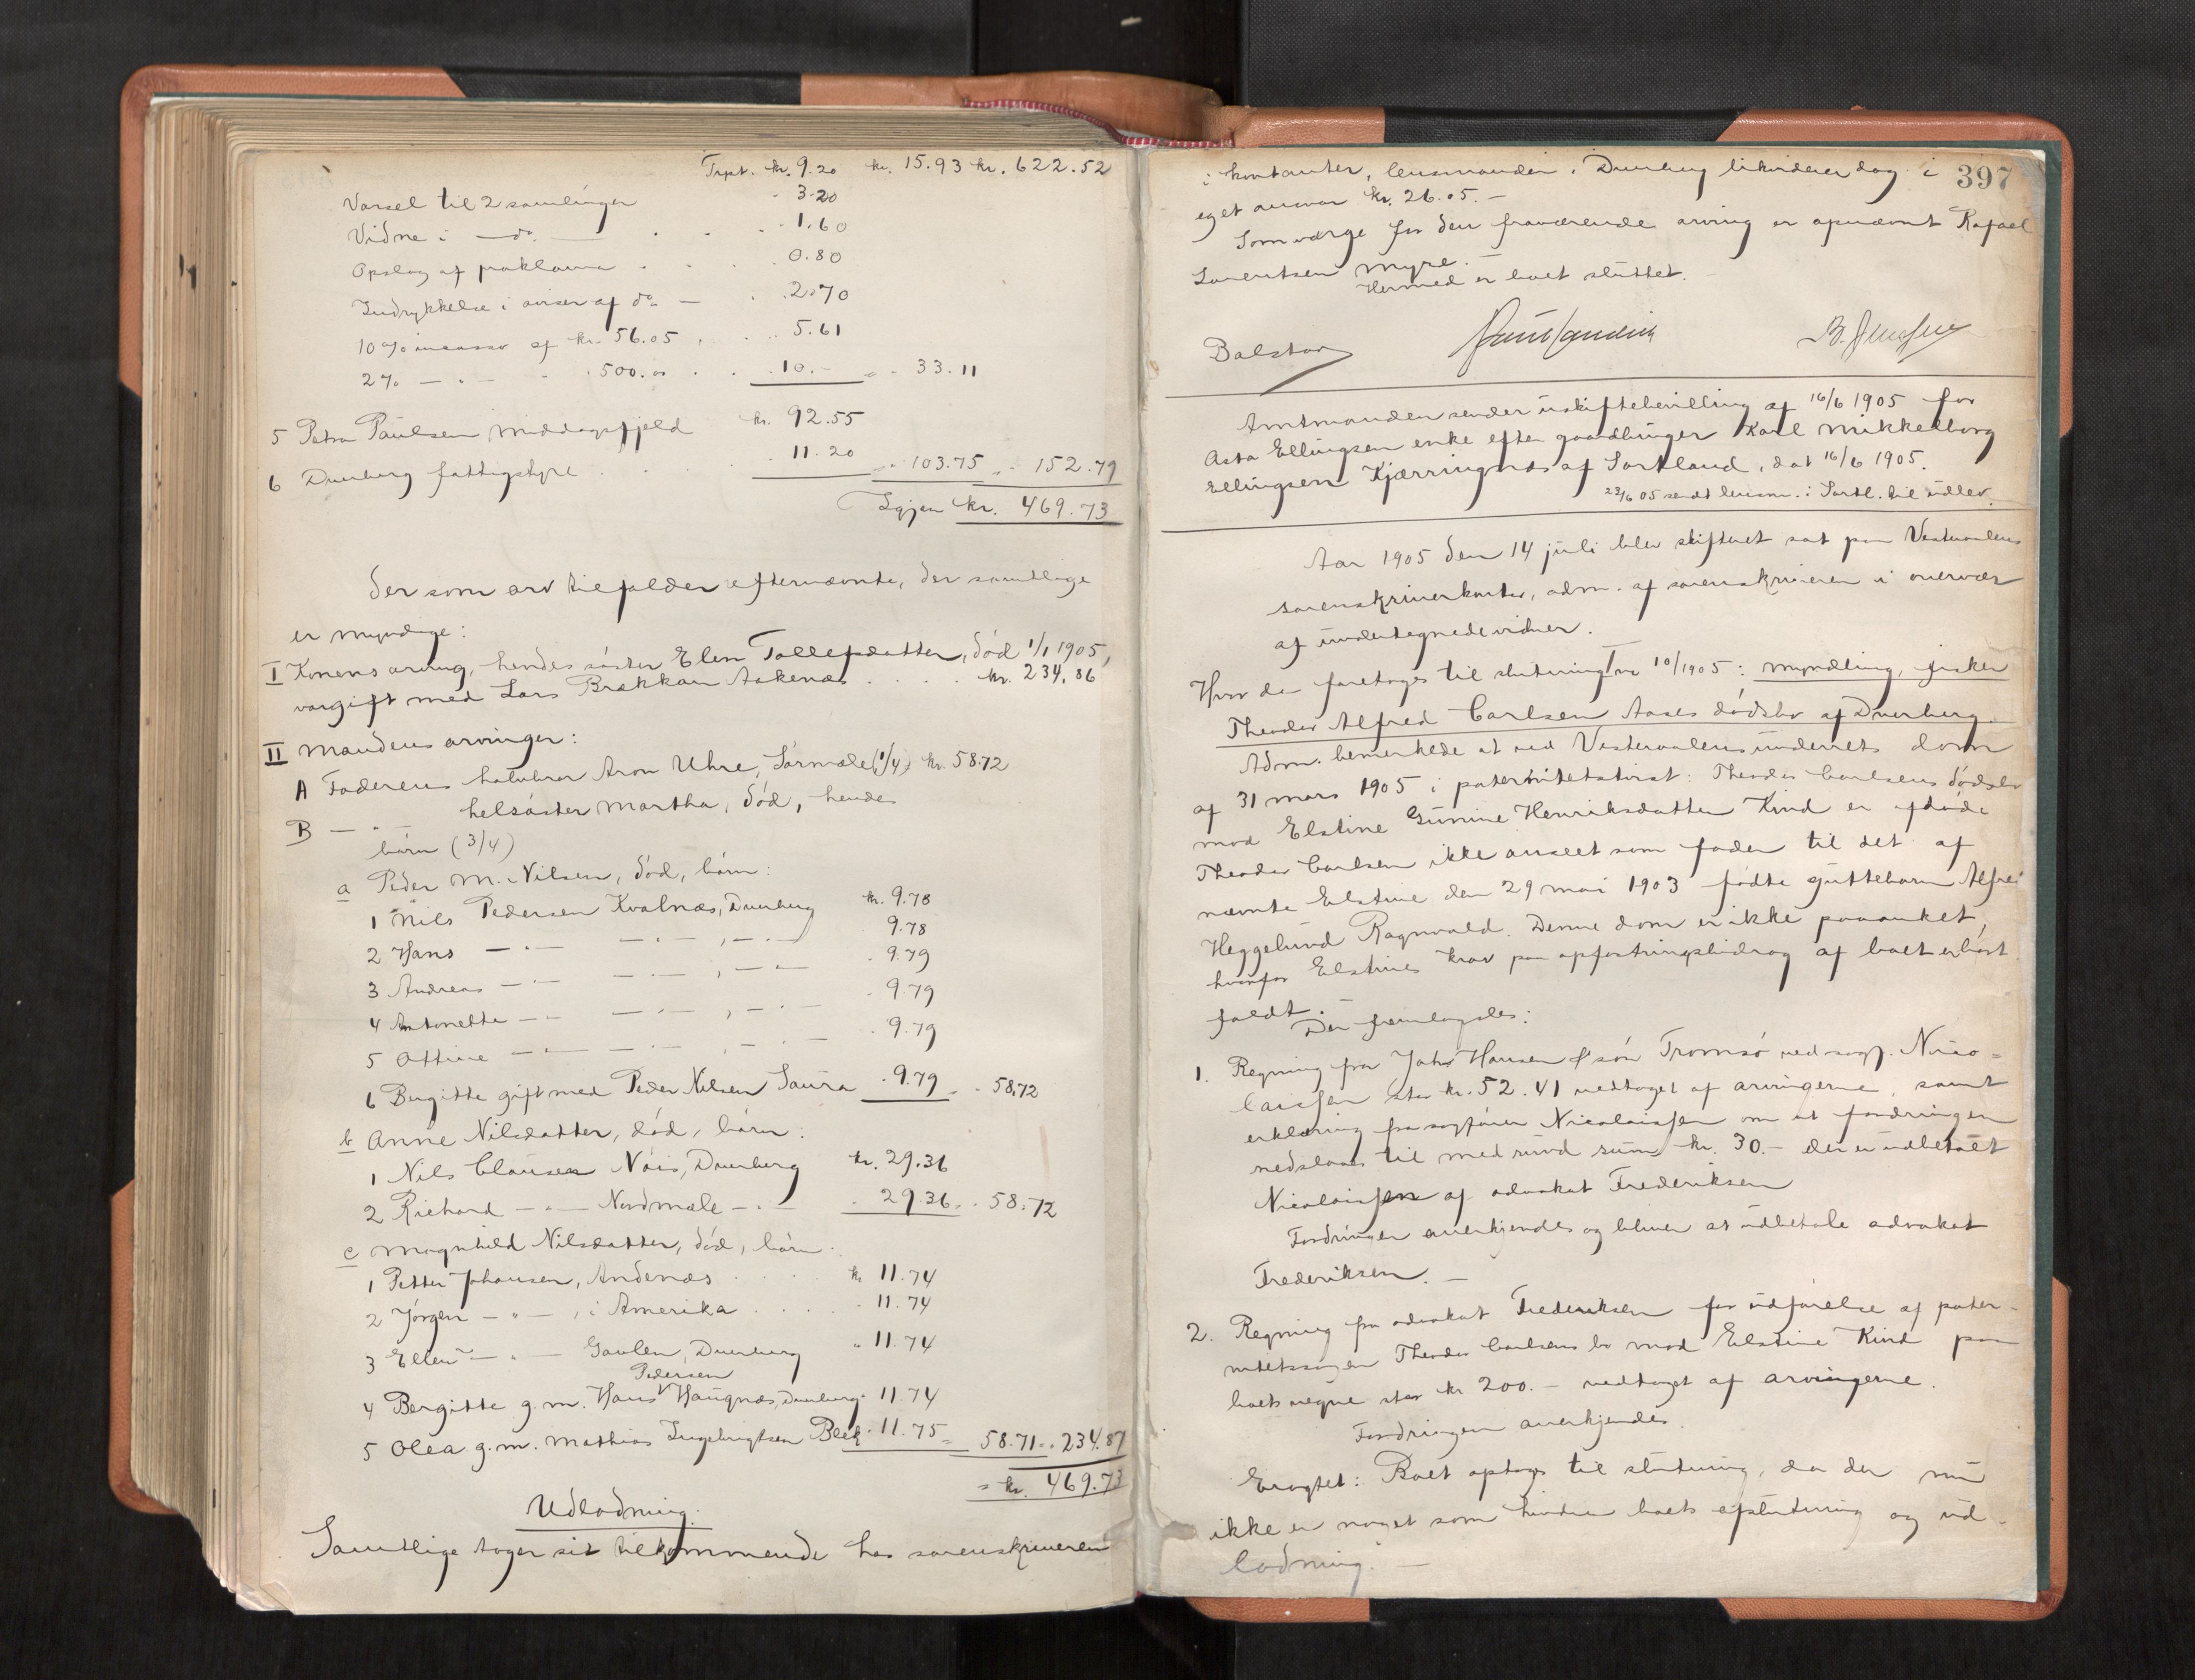 Trpt. kr. 9.20 kr. 15.93 kr. 622.52
Varsel til 2 samlinger - 3.20
Vidne i — do. — . . . 1.60
Opslag af proklama . . . 0.80
Indrykkelse i aviser af do — . 2.70
10 % incasso af kr. 56.05 . . . 5.61
2 % — " — " 500.00 . . . 10.- " " 33.11
5 Petra Paulsen Middagsfjeld kr. 92.55
6 Dverberg fattigstyre . . . 11.20 " " 103.75 " " 152.79
Igjen kr. 469.73
der som arv tilfalder efternævnte, der samtlige
er myndige:
I Konens arving, hendes søster Elen Tollefsdatter, død 1/1 1905,
vargift med Lars Brækkan Aakenæs . . . . kr. 234.86
II Mandens arvinger:
A Faderens halvbror Aron Uhre, Sørmæle (1/4) kr. 58.72
B — " — helsøster Martha, død, hendes
børn (3/4)
a Peder M. Nilsen, død, børn:
1 Nils Pedersen Kvalnæs, Dverberg kr. 9.78
2 Hans — " — — " — , — " — 9.78
3 Andreas — " — — " — , — " — 9.79
4 Antonette — " — — " — , — " — 9.79
5 Ottine — " — — " — , — " — 9.79
6 Bergitte gift med Peder Nilsen Saura . 9.79 " " 58.72
b Anne Nilsdatter, død, børn:
1 Nils Clausen Nøis, Dverberg kr. 29.36
2 Richard — " — Nordmæle — " — 29.36 " " 58.72
c Magnhild Nilsdatter, død, børn.
1 Petter Johansen, Andenæs . . . . kr 11.74
2 Jørgen — " — , i Amerika . . . . . 11.74
3 Ellen — " — Gavlen, Dverberg " 11.74
Pedersen
4 Bergitte g. m. Hans Haugnæs, Dverberg " 11.74
5 Olea g. m. Mathias Ingebrigtsen Bleik " 11.75 " 58.71 " " 234.87
= kr. 469.73
Udlodning.
Samtlige tager sit tilkommende hos sorenskriveren
397
i kontanter, lensmanden i Dverberg likviderer dog i
eget ansvar kr. 26.05. —
Som værge for den fraværende arving er opnævnt Rafael
Lorentsen Myre.
Hermed er boet sluttet.
Balstad B. Jenssen
Amtmanden sender uskiftebevilling af 16/6 1905 for
Asta Ellingsen enke efter gaardbruger Karl Mikkelborg
Ellingsen Kjærringnes af Sortland, dat 16/6 1905.
23/6 05 sendt lensm. i Sortl. til udlev.
Aar 1905 den 14 juli blev skifteret sat paa Vesteraalens
sorenskriverkontor, adm. af sorenskriveren i overvær
af undertegnede vidner.
Hvor da foretoges til slutning No 10/1905: myndling, fisker
Theodor Alfred Carlsen Aases dødsbo af Dverberg.
Adm. bemerkede at ved Vesteraalens underrets dom
af 31 mars 1905 i paternitetstvist: Theodor Carlsens dødsbo
mod Elstine Gunine Henriksdatter Kind er afdøde
Theodor Carlsen ikke anseet som fader til det af
nævnte Elstine den 29 mai 1903 fødte guttebarn Alfred
Heggelund Ragnvald. Denne dom er ikke paaanket,
hvorfor Elstines krav paa opfostringsbidrag af boet er bort
faldt. —
Der fremlagdes:
1. Regning fra Johs Hansen & søn Tromsø ved sagf. Nico=
laissen stor kr. 52.41 vedtaget af arvingerne, samt
erklæring fra sagfører Nicolaissen om at fordringen
nedslaaes til med rund sum kr. 30.- der er udbetalt
Nicolaissen af advokat Frederiksen
Fordringen anerkjendes og bliver at udbetale advokat
Frederiksen. —
2. Regning fra advokat Frederiksen for udførelse af pater-
nitetssagen Theodor Carlsens bo mod Elstine Kind paa
boets vegne stor kr 200.- vedtaget af arvingerne.
Fordringen anerkjendes.
Eragtet: Boet optages til slutning, da der nu
ikke er noget som hindrer boets afslutning og ud-
lodning. —